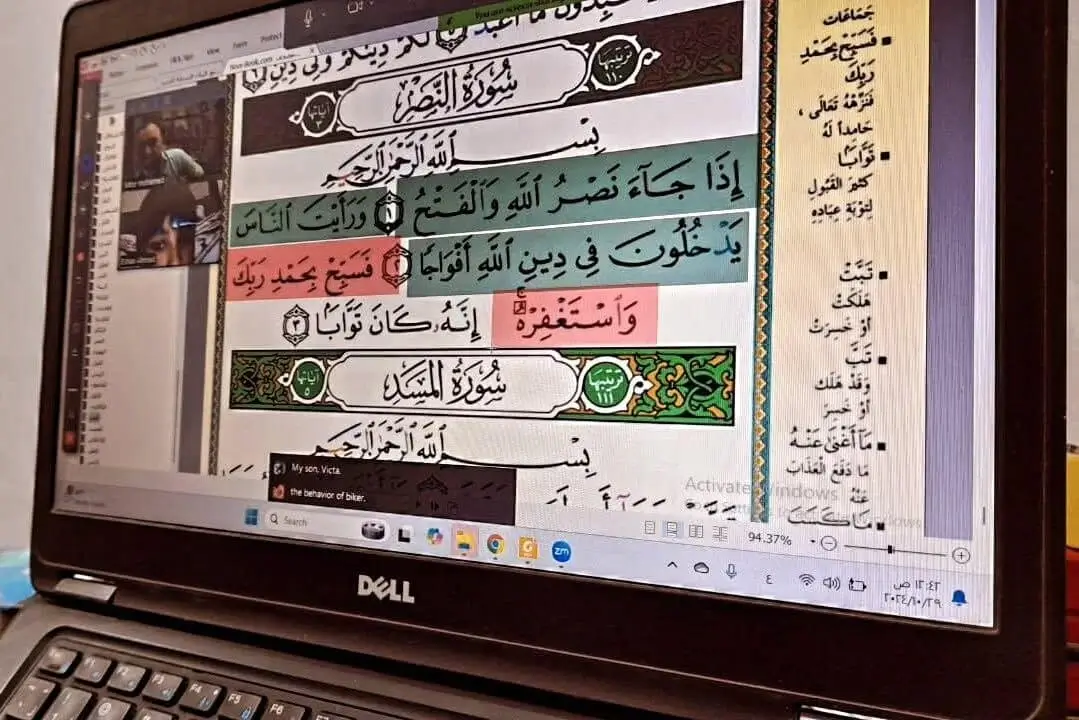 View
Form
Protect
لَكُمْ دِينُكُمْ وَلِيَ دِينِ ٦
ترتيبها ١١٠
سُورَةُ النَّصْرِ
آياتها ٣
بِسْمِ اللَّهِ الرَّحْمَٰنِ الرَّحِيمِ
إِذَا جَآءَ نَصْرُ ٱللَّهِ وَٱلْفَتْحُ ١ وَرَأَيْتَ ٱلنَّاسَ
يَدْخُلُونَ فِي دِينِ ٱللَّهِ أَفْوَاجًا ٢ فَسَبِّحْ بِحَمْدِ رَبِّكَ
وَٱسْتَغْفِرْهُ ۚ إِنَّهُۥ كَانَ تَوَّابًۢا ٣
ترتيبها ١١١
سُورَةُ المَسَدِ
آياتها ٥
بِسْمِ اللَّهِ الرَّحْمَٰنِ الرَّحِيمِ
جَمَاعَات
فَسَبِّحْ بِحَمْدِ
رَبِّكَ
فَنَزِّهْهُ تَعَالَى ،
حَامِداً لَهُ
تَوَّابًا
كَثِيرَ القَبُولِ
لِتَوْبَةِ عِبَادِهِ
تَبَّتْ
هَلَكَتْ
أَوْ خَسِرَتْ
تَبَّ
وَقَدْ هَلَكَ
أَوْ خَسِرَ
مَآ أَغْنَىٰ عَنْهُ
مَا دَفَعَ الْعَذَابَ
عَنْهُ
مَا كَسَبَ
My son, Victa.
the behavior of biker.
Activate Windows
Search
94.37%
zm
ع
١٢:٤٢ ص
٢٠٢٤/١٠/٢٩
DELL
F1
F2
F3
F4
F5
F6
F7